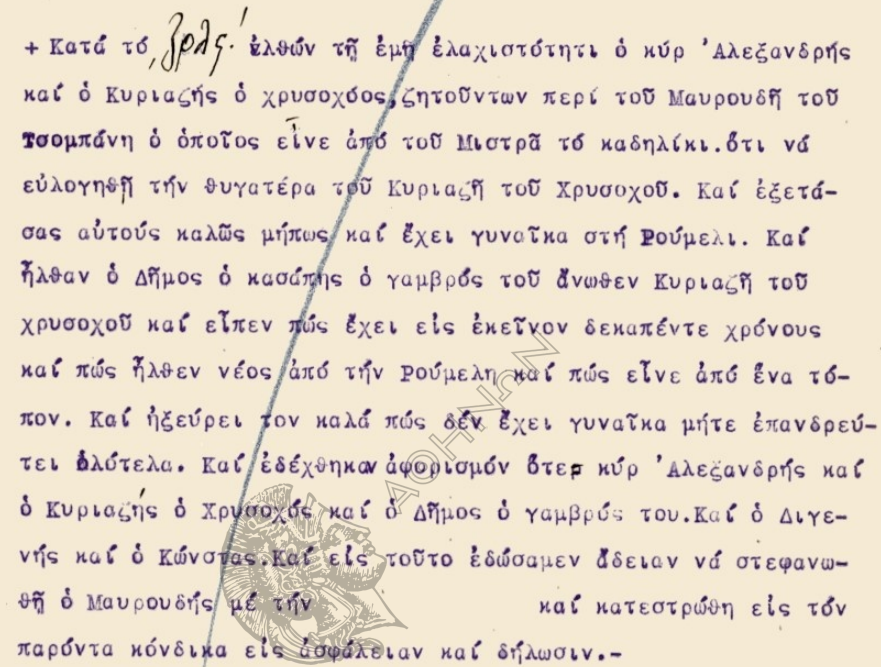 + Κατά τό ͵ζρλς΄ ἐλθών τῇ ἐμῇ ἐλαχιστότητι ὁ κύρ Ἀλεξανδρής
καί ὁ Κυριαζής ὁ χρυσοχόος, ζητοῦντων περί τοῦ Μαυρουδῆ τοῦ
Τσομπάνη ὁ ὁποῖος εἶνε ἀπό τοῦ Μιστρᾶ τό καδηλίκι. ὅτι νά
εὐλογηθῇ τήν θυγατέρα τοῦ Κυριαζῆ τοῦ Χρυσοχοῦ. Καί ἐξετά-
σας αὐτούς καλῶς μήπως καί ἔχει γυναῖκα στή Ρούμελι. Καί
ἦλθαν ὁ Δῆμος ὁ κασάπης ὁ γαμβρός τοῦ ἄνωθεν Κυριαζῆ τοῦ
χρυσοχοῦ καί εἶπεν πώς ἔχει εἰς ἐκεῖνον δεκαπέντε χρόνους
καί πώς ἦλθεν νέος ἀπό τήν Ρούμελη καί πώς εἶνε ἀπό ἕνα τό-
πον. Καί ἠξεύρει τον καλά πώς δέν ἔχει γυναῖκα μήτε ἐπανδρεύ-
τει ὁλότελα. Καί ἐδέχθηκαν ἀφορισμόν ὅτε κύρ Ἀλεξανδρής καί
ὁ Κυριαζής ὁ Χρυσοχός καί ὁ Δῆμος ὁ γαμβρός του. Καί ὁ Διγε-
νής καί ὁ Κώνστας. Καί εἰς τοῦτο ἐδώσαμεν ἄδειαν νά στεφανω-
θῇ ὁ Μαυρουδής μέ τήν καί κατεστρώθη εἰς τόν
παρόντα κόνδικα εἰς ἀσφάλειαν καί δήλωσιν.-
ΑΘΗΝΩΝ